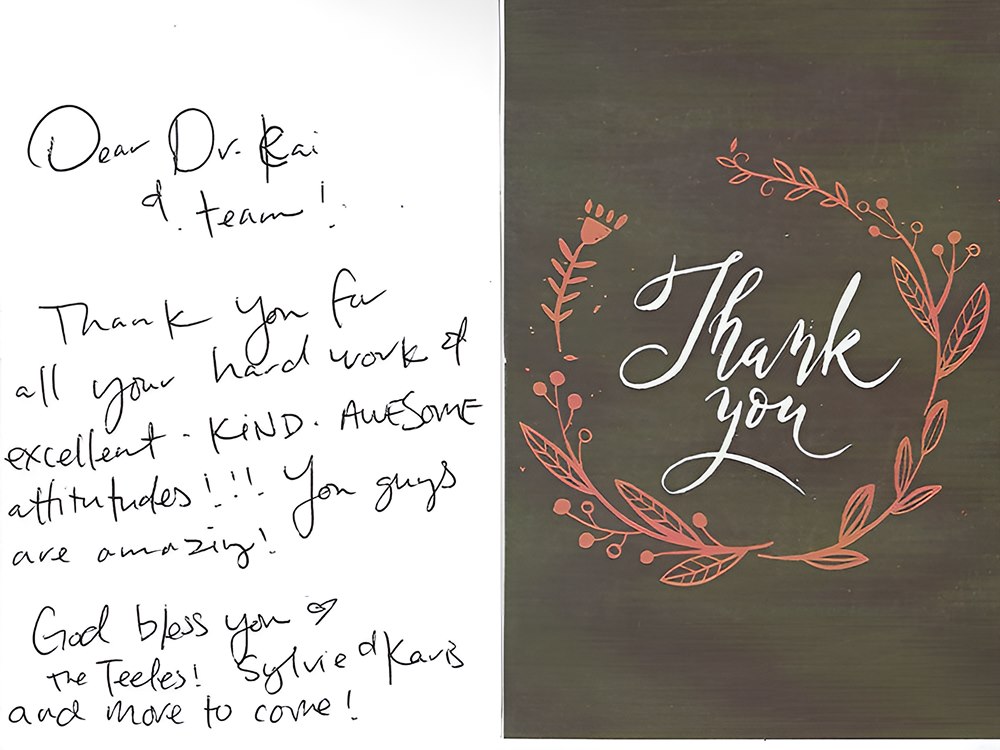 Dear Dr. Kai
& team!
Thank you for
all your hard work &
excellent - KiND - AWESOME
attitutudes!!! You guys
are amazing!
God bless you ♡
The Teeles! Sylvie &
and more to come!
Thank
you